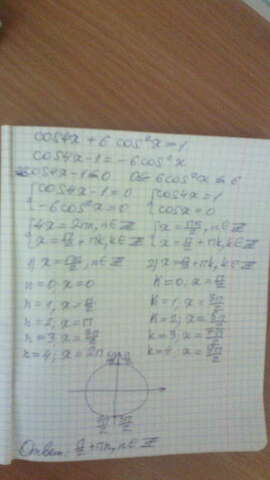 cos4x + 6 cos²x = 1
cos4x - 1 = -6cos²x
cos4x - 1 ≤ 0 0 ≤ 6cos²x ≤ 6
{cos4x - 1 = 0 {cos4x = 1
{-6cos²x = 0 {cosx = 0
{4x = 2πn, n∈Z {x = πn/2, n∈Z
{x = π/2 + πk, k∈Z {x = π/2 + πk, k∈Z
1) x = πn/2, n∈Z 2) x = π/2 + πk, k∈Z
n = 0, x = 0 k = 0, x = π/2
n = 1, x = π/2 k = 1, x = 3π/2
n = 2, x = π k = 2; x = 5π/2
n = 3 x = 3π/2 k = 3; x = 7π/2
n = 4; x = 2π k = 4, x = 9π/2
3π/2
Ответ: π/2 + πn, n∈Z